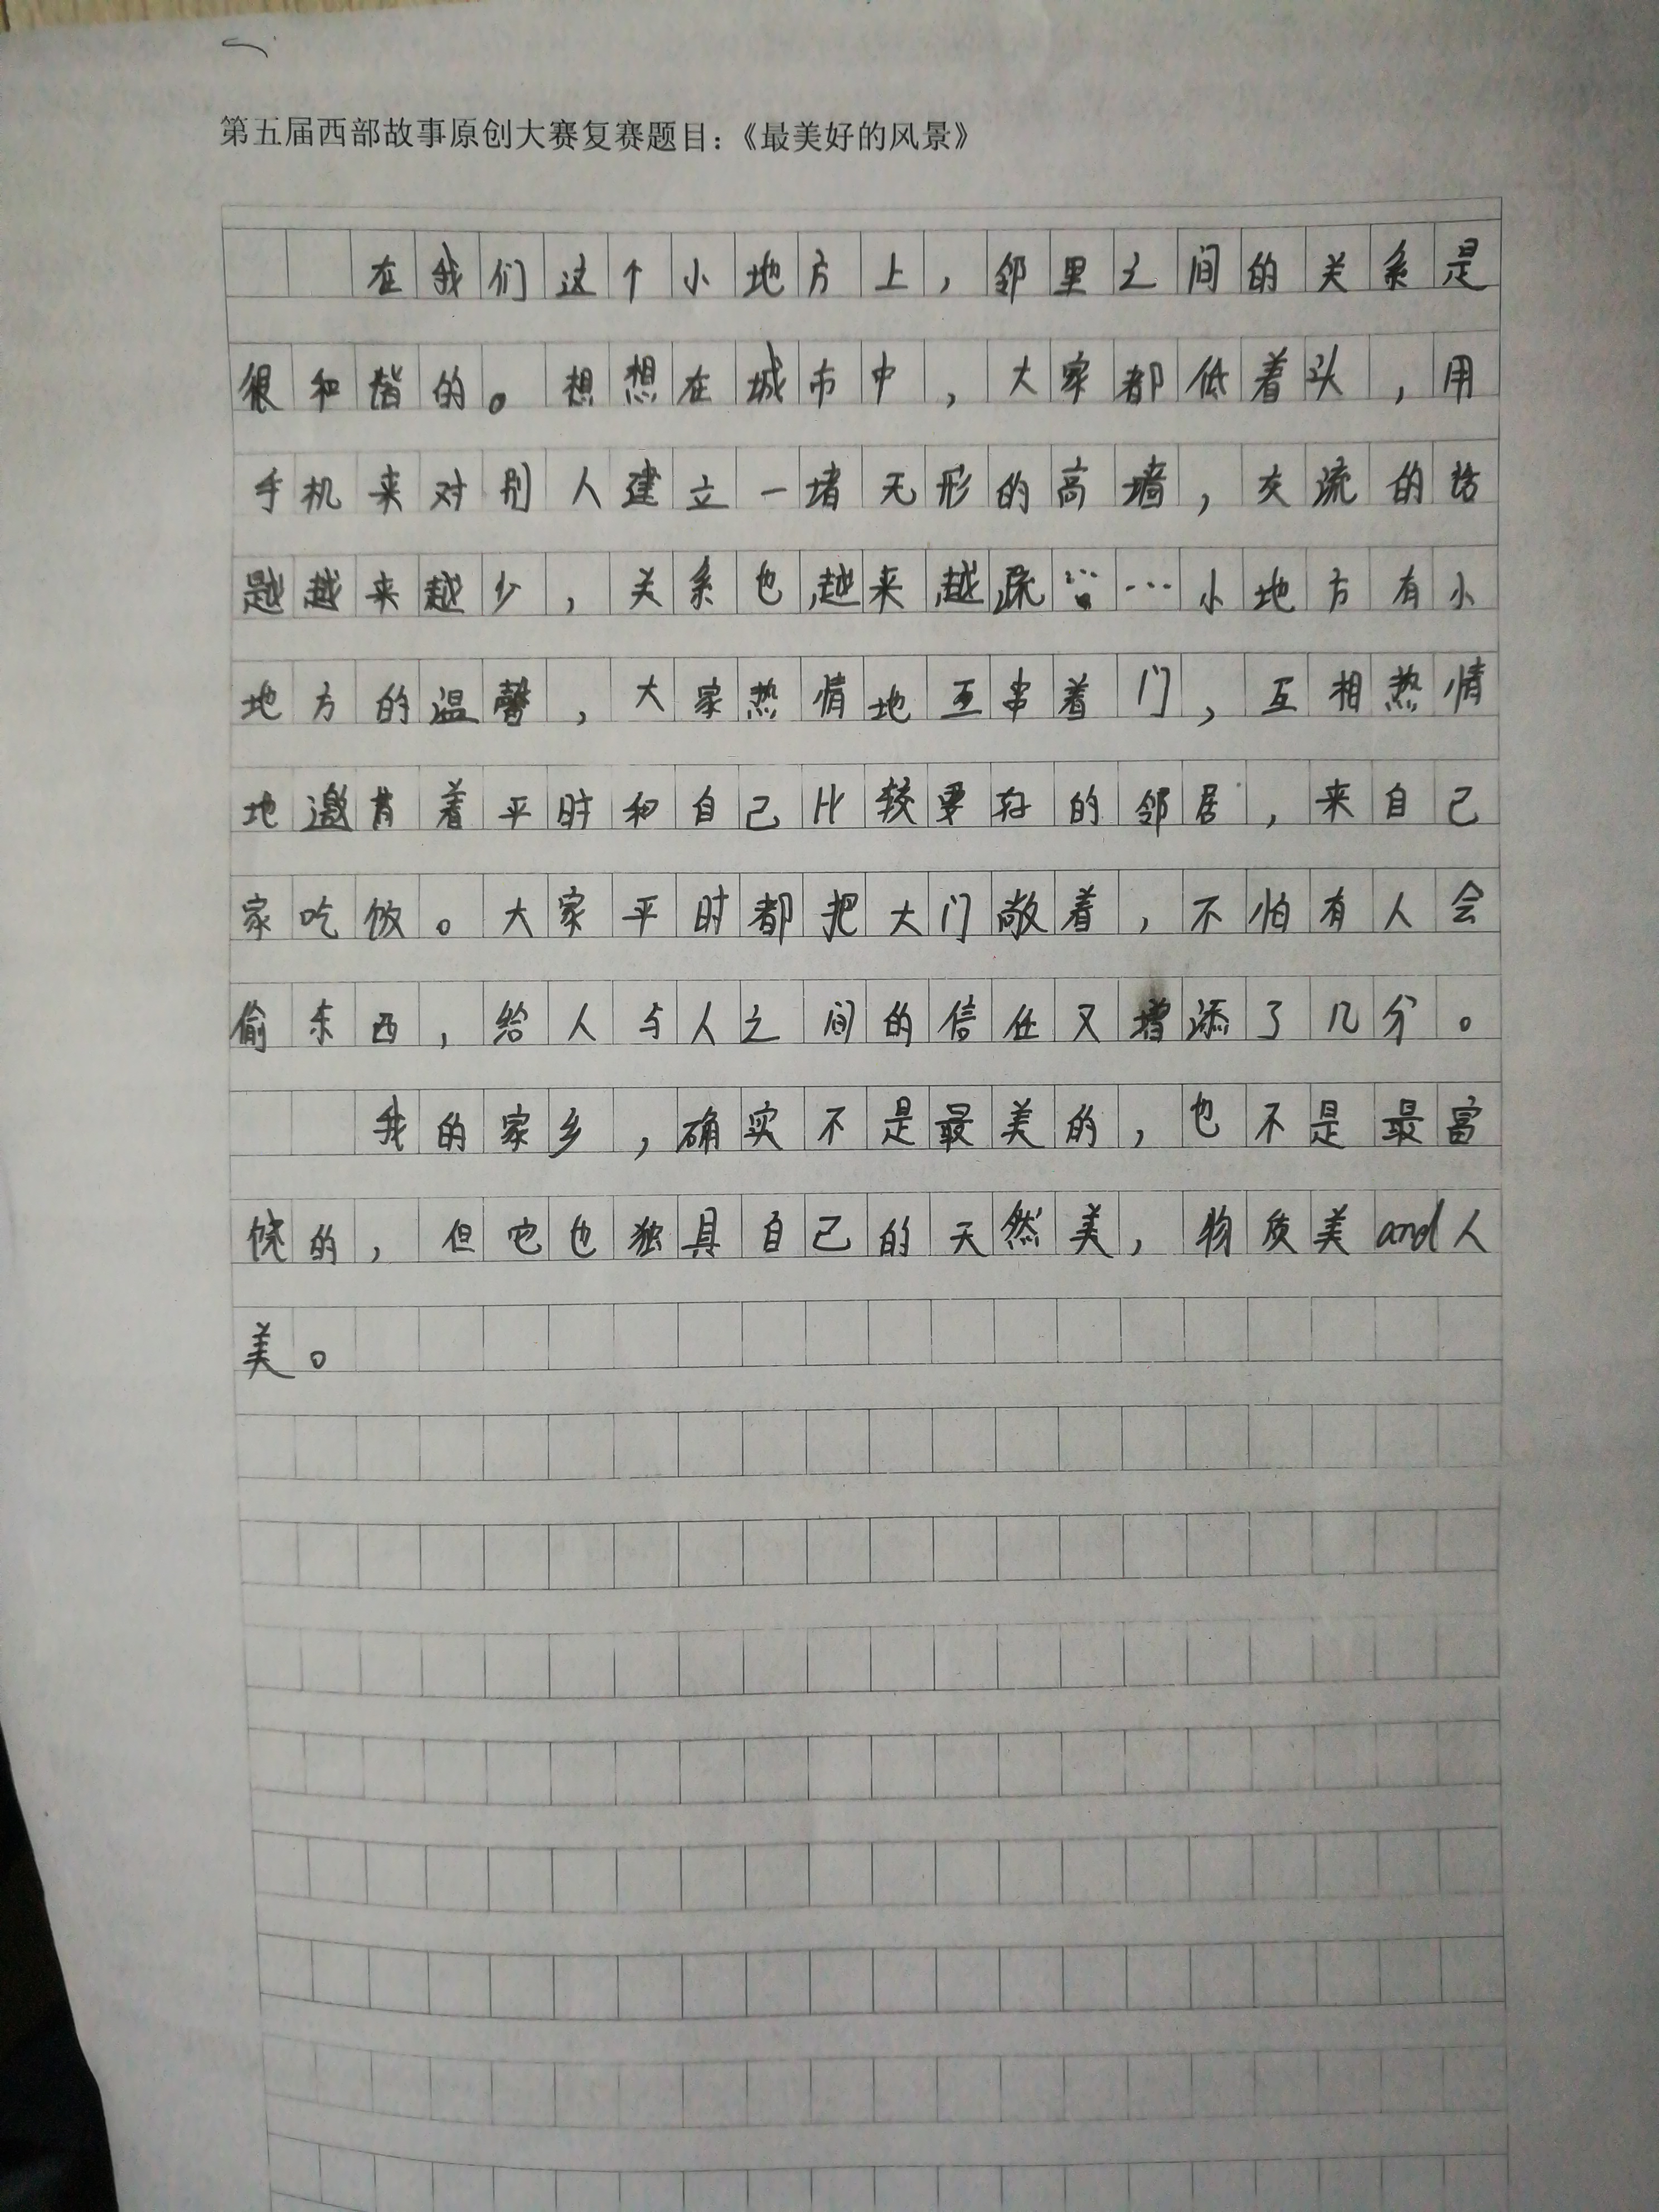 第五届西部故事原创大赛复赛题目：《最美好的风景》
在我们这个小地方上，邻里之间的关系是
很和谐的。想想在城市中，大家都低着头，用
手机来对别人建立一堵无形的高墙，交流的话
题越来越少，关系也越来越疏……小地方有小
地方的温馨，大家热情地互串着门，互相热情
地邀着平时和自己比较要好的邻居，来自己
家吃饭。大家平时都把大门敞着，不怕有人会
偷东西，给人与人之间的信任又增添了几分。
我的家乡，确实不是最美的，也不是最富
饶的，但它也独具自己的天然美，物质美and人
美。